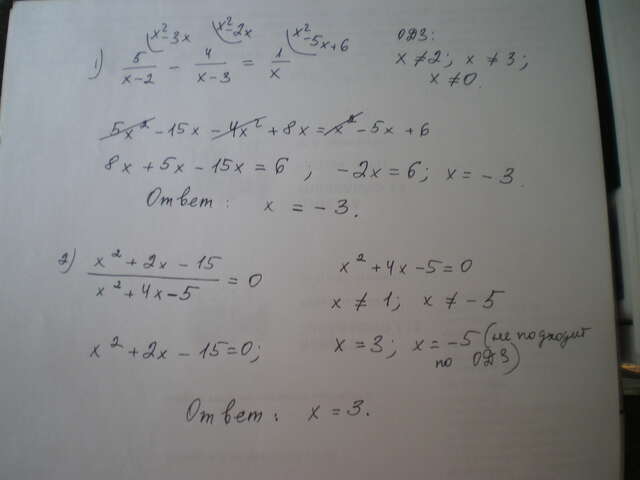 x²-3x x²-2x x²-5x+6 ОДЗ:
1) 5/(x-2) - 4/(x-3) = 1/x x ≠ 2; x ≠ 3;
x ≠ 0.
5x² - 15x - 4x² + 8x = x² - 5x + 6
8x + 5x - 15x = 6 ; -2x = 6; x = -3.
Ответ: x = -3.
2) (x² + 2x - 15)/(x² + 4x - 5) = 0 x² + 4x - 5 = 0
x ≠ 1; x ≠ -5
x² + 2x - 15 = 0; x = 3; x = -5 (не подходит
по ОДЗ)
Ответ: x = 3.